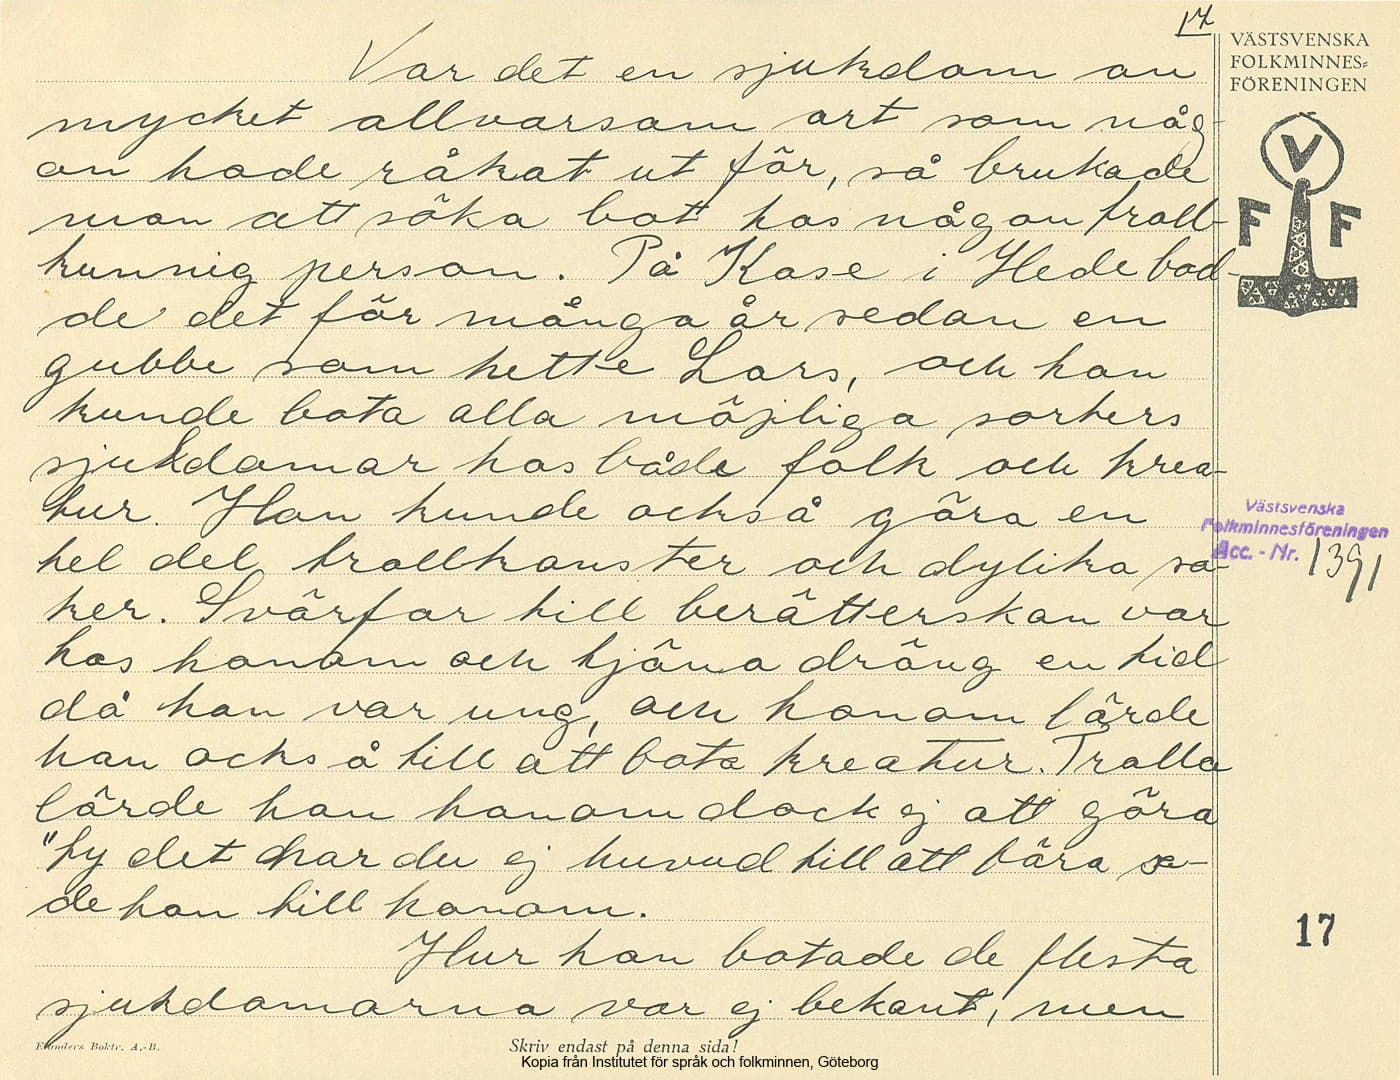 17
VÄSTSVENSKA
FOLKMINNES=
FÖRENINGEN
V
F F
Var det en sjukdom av
mycket allvarsam art som någ-
on hade råkat ut för, så brukade
man att söka bot hos någon troll-
kunnig person. På Kase i Hede bod-
de det för många år sedan en
gubbe som hette Lars, och han
kunde bota alla möjliga sorters
sjukdomar hos både folk och krea-
tur. Han kunde också göra en
hel del trollkonster och dylika sa-
ker. Svärfar till berätterskan var
hos honom och tjäna dräng en tid
då han var ung, och honom lärde
han också till att bota kreatur. Trolla
lärde han honom dock ej att göra
"ty det har du ej huvud till att bära sa-
de han till honom.
Hur han botade de flesta
sjukdomarna var ej bekant, men
Västsvenska
Folkminnesföreningen
Acc. - Nr. 1391
17
Elanders Boktr. A.-B.
Skriv endast på denna sida!
Kopia från Institutet för språk och folkminnen, Göteborg